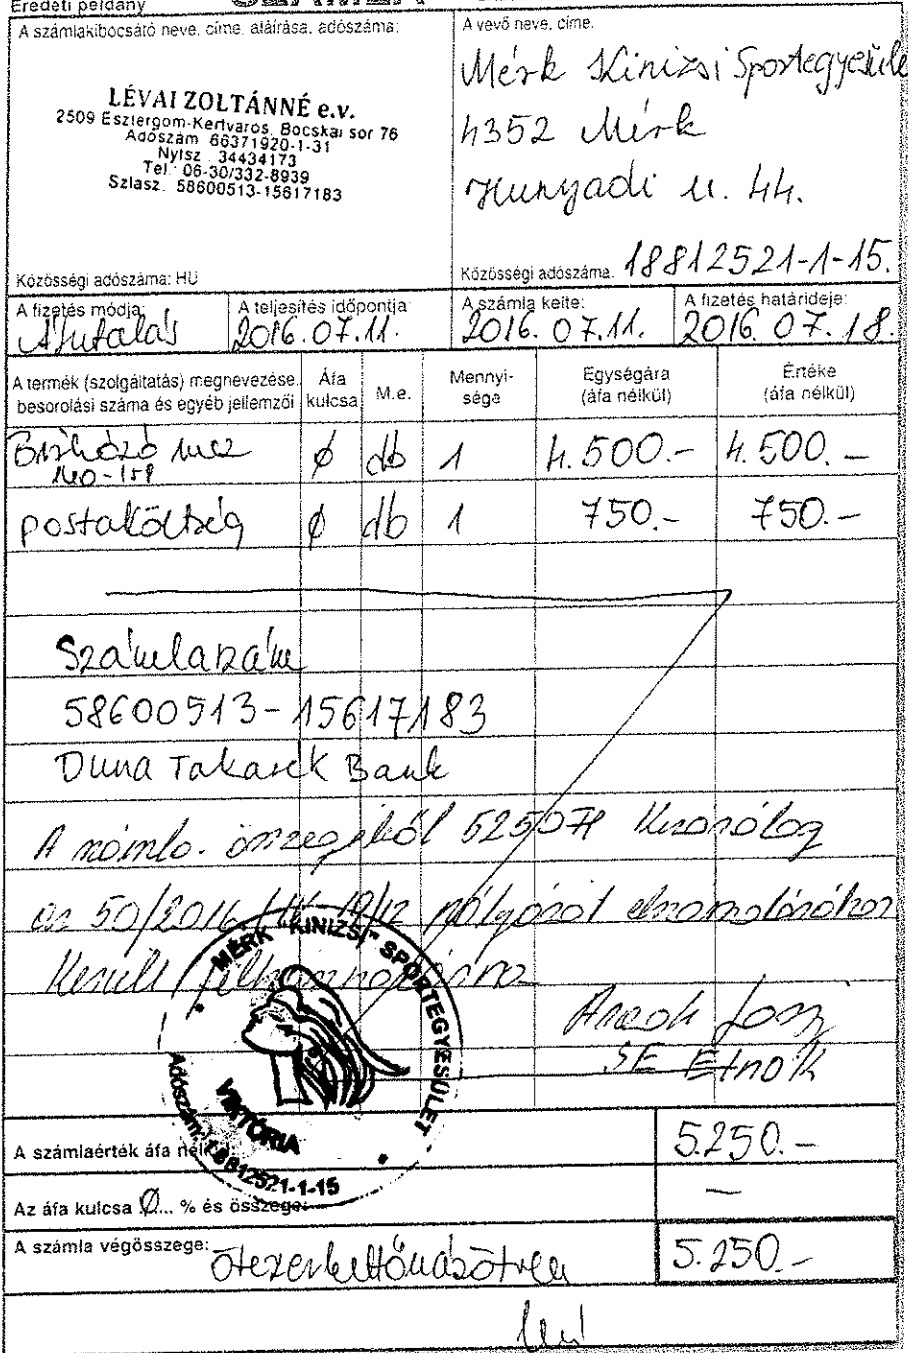 Eredeti példány
A számlakibocsátó neve, címe, aláírása, adószáma:
LÉVAI ZOLTÁNNÉ e.v.
2509 Esztergom-Kertváros, Bocskai sor 76
Adószám 66371920-1-31
Nyisz 34434173
Tel.: 06-30/332-8939
Szlasz. 58600513-15617183
Közösségi adószáma: HU
A vevő neve, címe:
Mérk Kinizsi Sportegyesüle
4352 Mérk
Hunyadi u. 44.
Közösségi adószáma: 18812521-1-15.
A fizetés módja: Átutalás
A teljesítés időpontja: 2016.07.11.
A számla kelte: 2016.07.11.
A fizetés határideje: 2016.07.18.
A termék (szolgáltatás) megnevezése, besorolási száma és egyéb jellemzői Áfa kulcsa M.e. Mennyi-sége Egységára (áfa nélkül) Értéke (áfa nélkül)
Birkózó mez Ø db 1 4.500.- 4.500.-
140-158
postaköltség Ø db 1 750.- 750.-
Számlaszám
58600513-15617183
Duna Takarék Bank
A számla összegéből 5250 Ft kizárólag
az 50/2016 pályázat elszámolásához
Került felhasználásra
SE Elnök
MÉRK "KINIZSI" SPORTEGYESÜLET
VIKTÓRIA
Adószám: 18812521-1-15
A számlaérték áfa nélkül: 5.250.-
Az áfa kulcsa Ø... % és összege: —
A számla végösszege: ötezerkettőszázötven 5.250.-